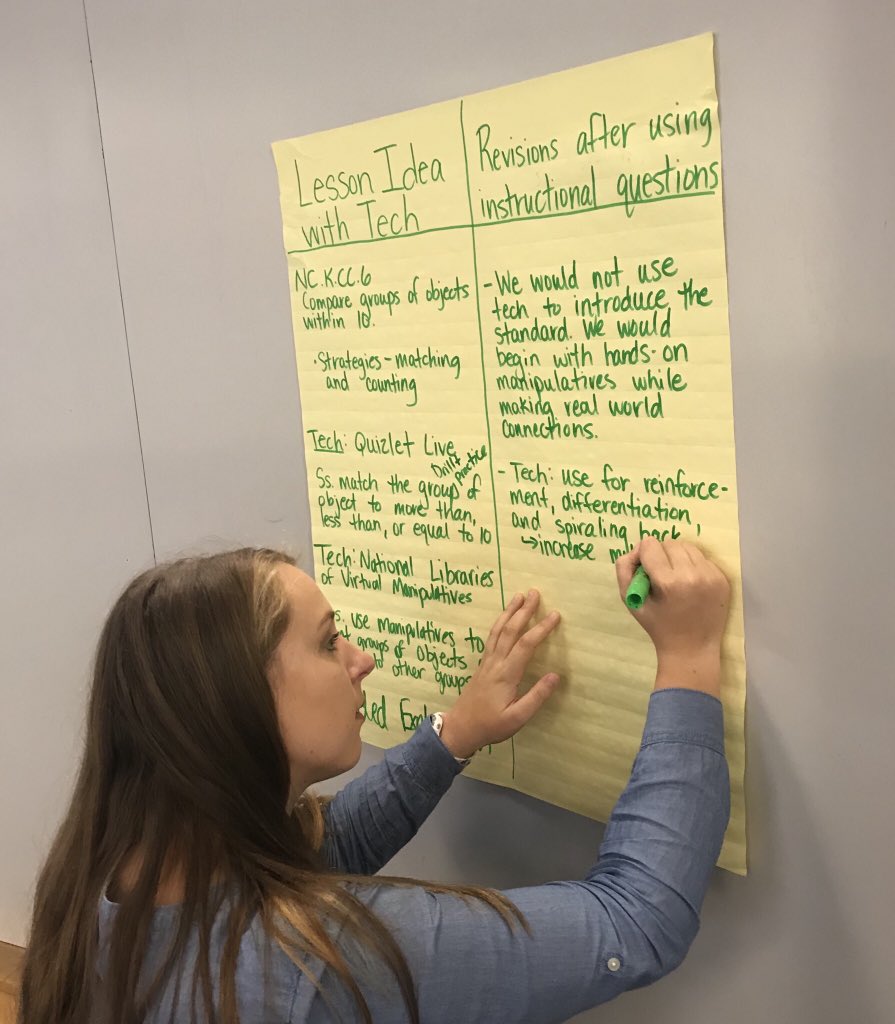 Lesson Idea
with Tech
NC.K.CC.6
Compare groups of objects
within 10.
·Strategies - matching
and counting
Tech: Quizlet Live
Drill + practice
Ss. match the group of
object to more than,
less than, or equal to 10
Tech: National Libraries
of Virtual Manipulatives
use manipulatives to
groups of objects
other groups
Revisions after using
instructional questions
- We would not use
tech to introduce the
standard. We would
begin with hands-on
manipulatives while
making real world
connections.
- Tech: use for reinforce-
ment, differentiation,
and spiraling back,
↳increase